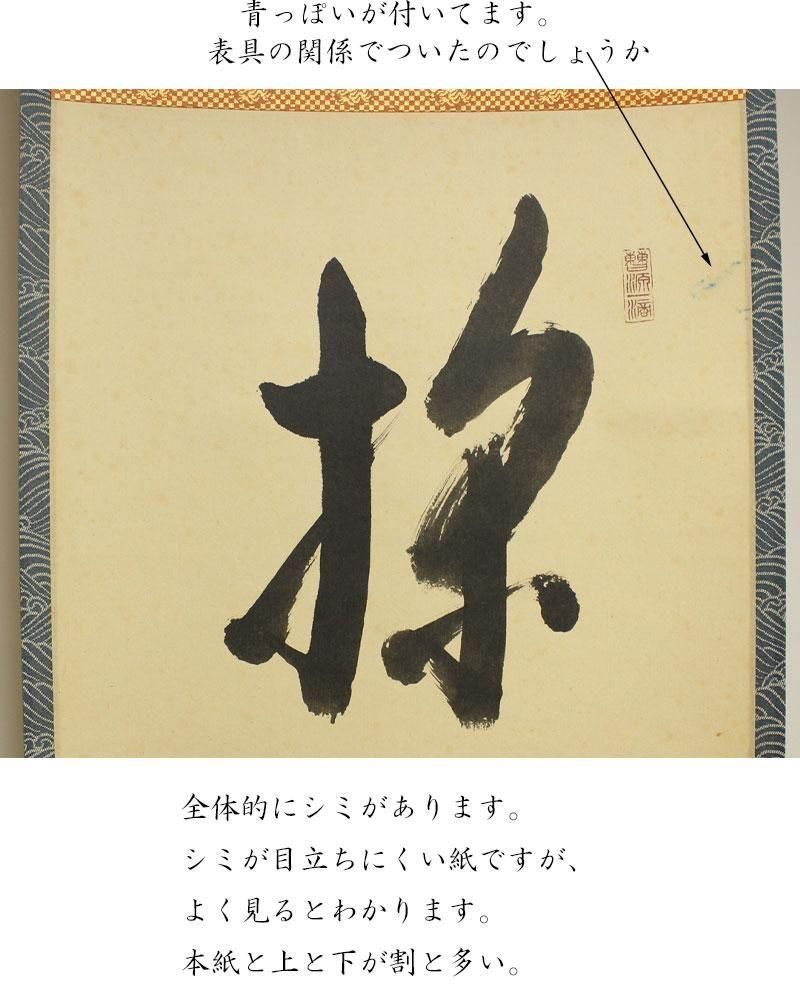 青っぽいが付いてます。
表具の関係でついたのでしょうか
曹源一滴
全体的にシミがあります。
シミが目立ちにくい紙ですが、
よく見るとわかります。
本紙と上と下が割と多い。